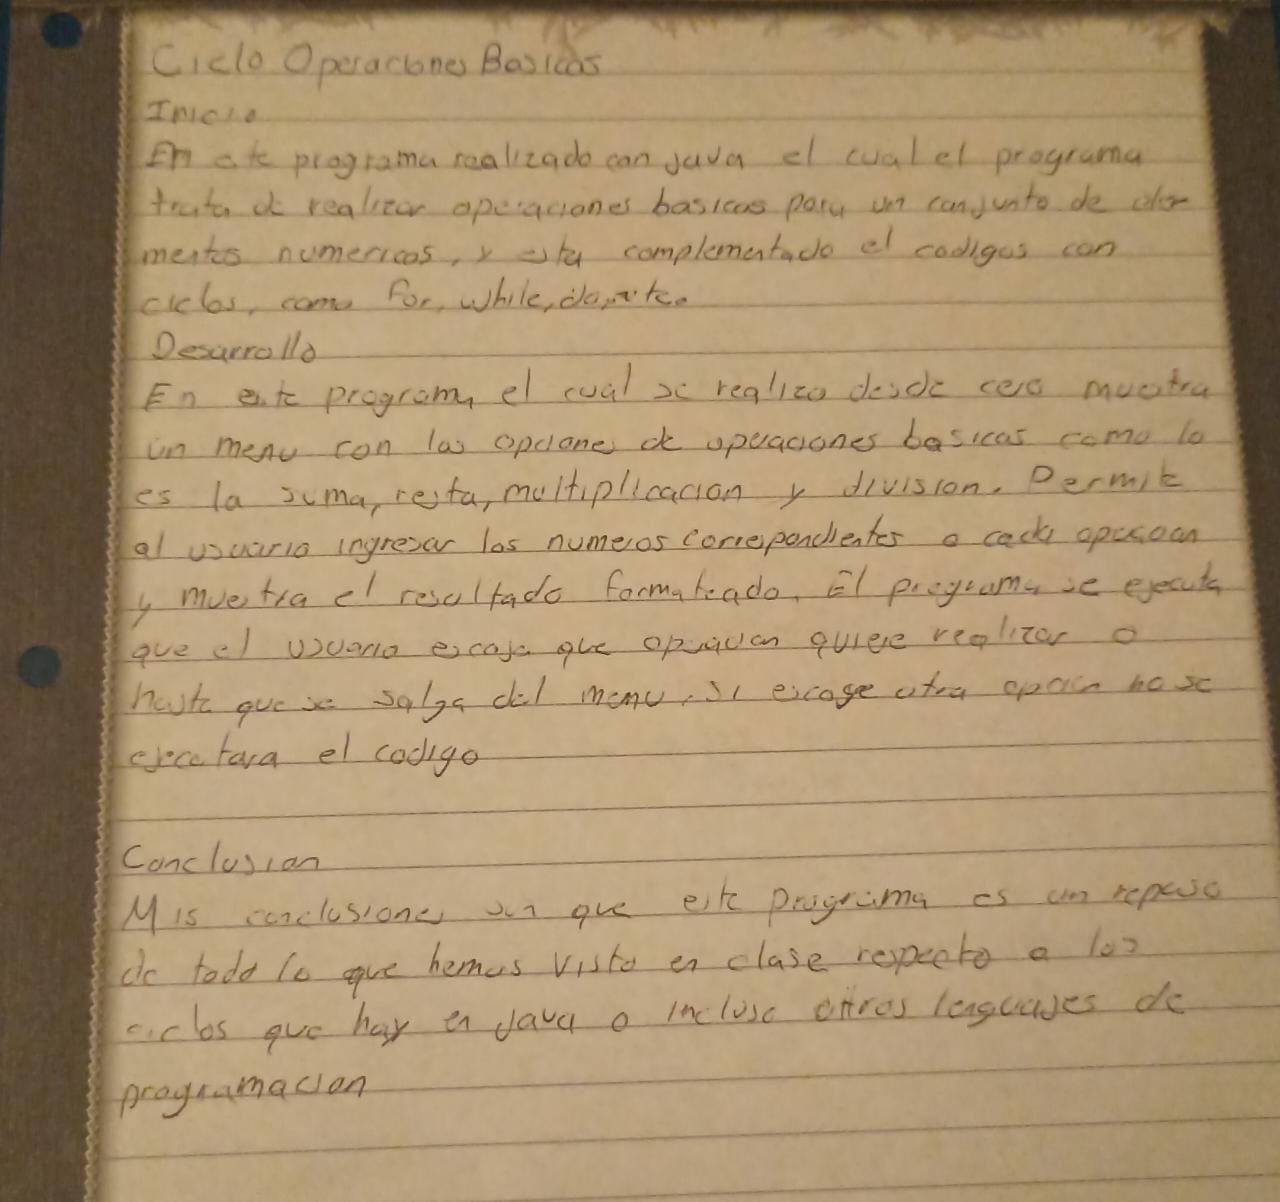 Ciclo Operaciones Basicas
Inicio
En este programa realizado con java el cual el programa
trata de realizar operaciones basicas para un conjunto de ele
mentos numericos, y esta complementado el codigos con
ciclos, como for, while, do, etc.
Desarrollo
En este programa el cual se realizo desde cero muestra
un menu con las opciones de operaciones basicas como lo
es la suma, resta, multiplicacion y division. Permite
al usuario ingresar los numeros correspondientes a cada operacion
y muestra el resultado formateado. El programa se ejecuta
que el usuario escoja que operacion quiere realizar o
hasta que se salga del menu, si escoge otra opcion no se
ejecutara el codigo
Conclusion
Mis conclusiones son que este programa es un repaso
de todo lo que hemos visto en clase respecto a los
ciclos que hay en java o incluso otros lenguajes de
programacion